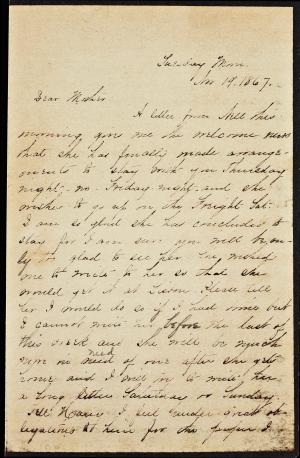 Tuesday Morn.
Nov 19, 1867.
Dear Mother
A letter from Nell this
morning gives me the welcome news
that she has finally made arrange-
ments to stay with you Thursday
night, - no - Friday night and she
wishes to go up on the Freight Sat.
I am so glad she has concluded to
stay for I am sure you will be
glad to see her. She wished
me to write to her so that she
would get it at Please tell
her I would do so if I had time but
I cannot write her before the last of
this week and she will be much
more in need of one after she gets
home and I will try to write her
a long letter Saturday or Sunday.
Tell I feel under great ob-
ligations to him for the paper I